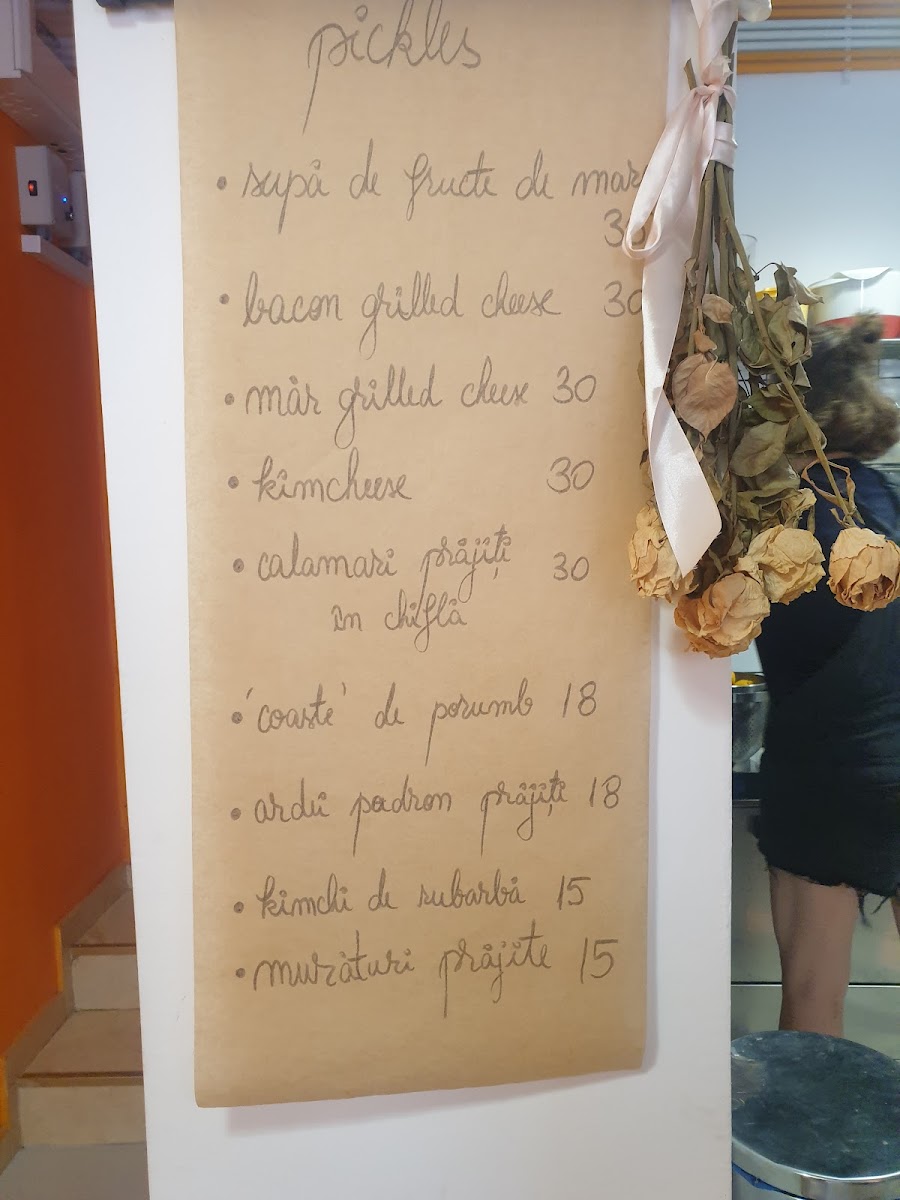 pickles
• supă de fructe de mar
30
• bacon grilled cheese 30
• măr grilled cheese 30
• kimcheese 30
• calamari prăjiți 30
în chiflă
• 'coaste' de porumb 18
• ardei padron prăjiți 18
• kimchi de rubarbă 15
• murături prăjite 15